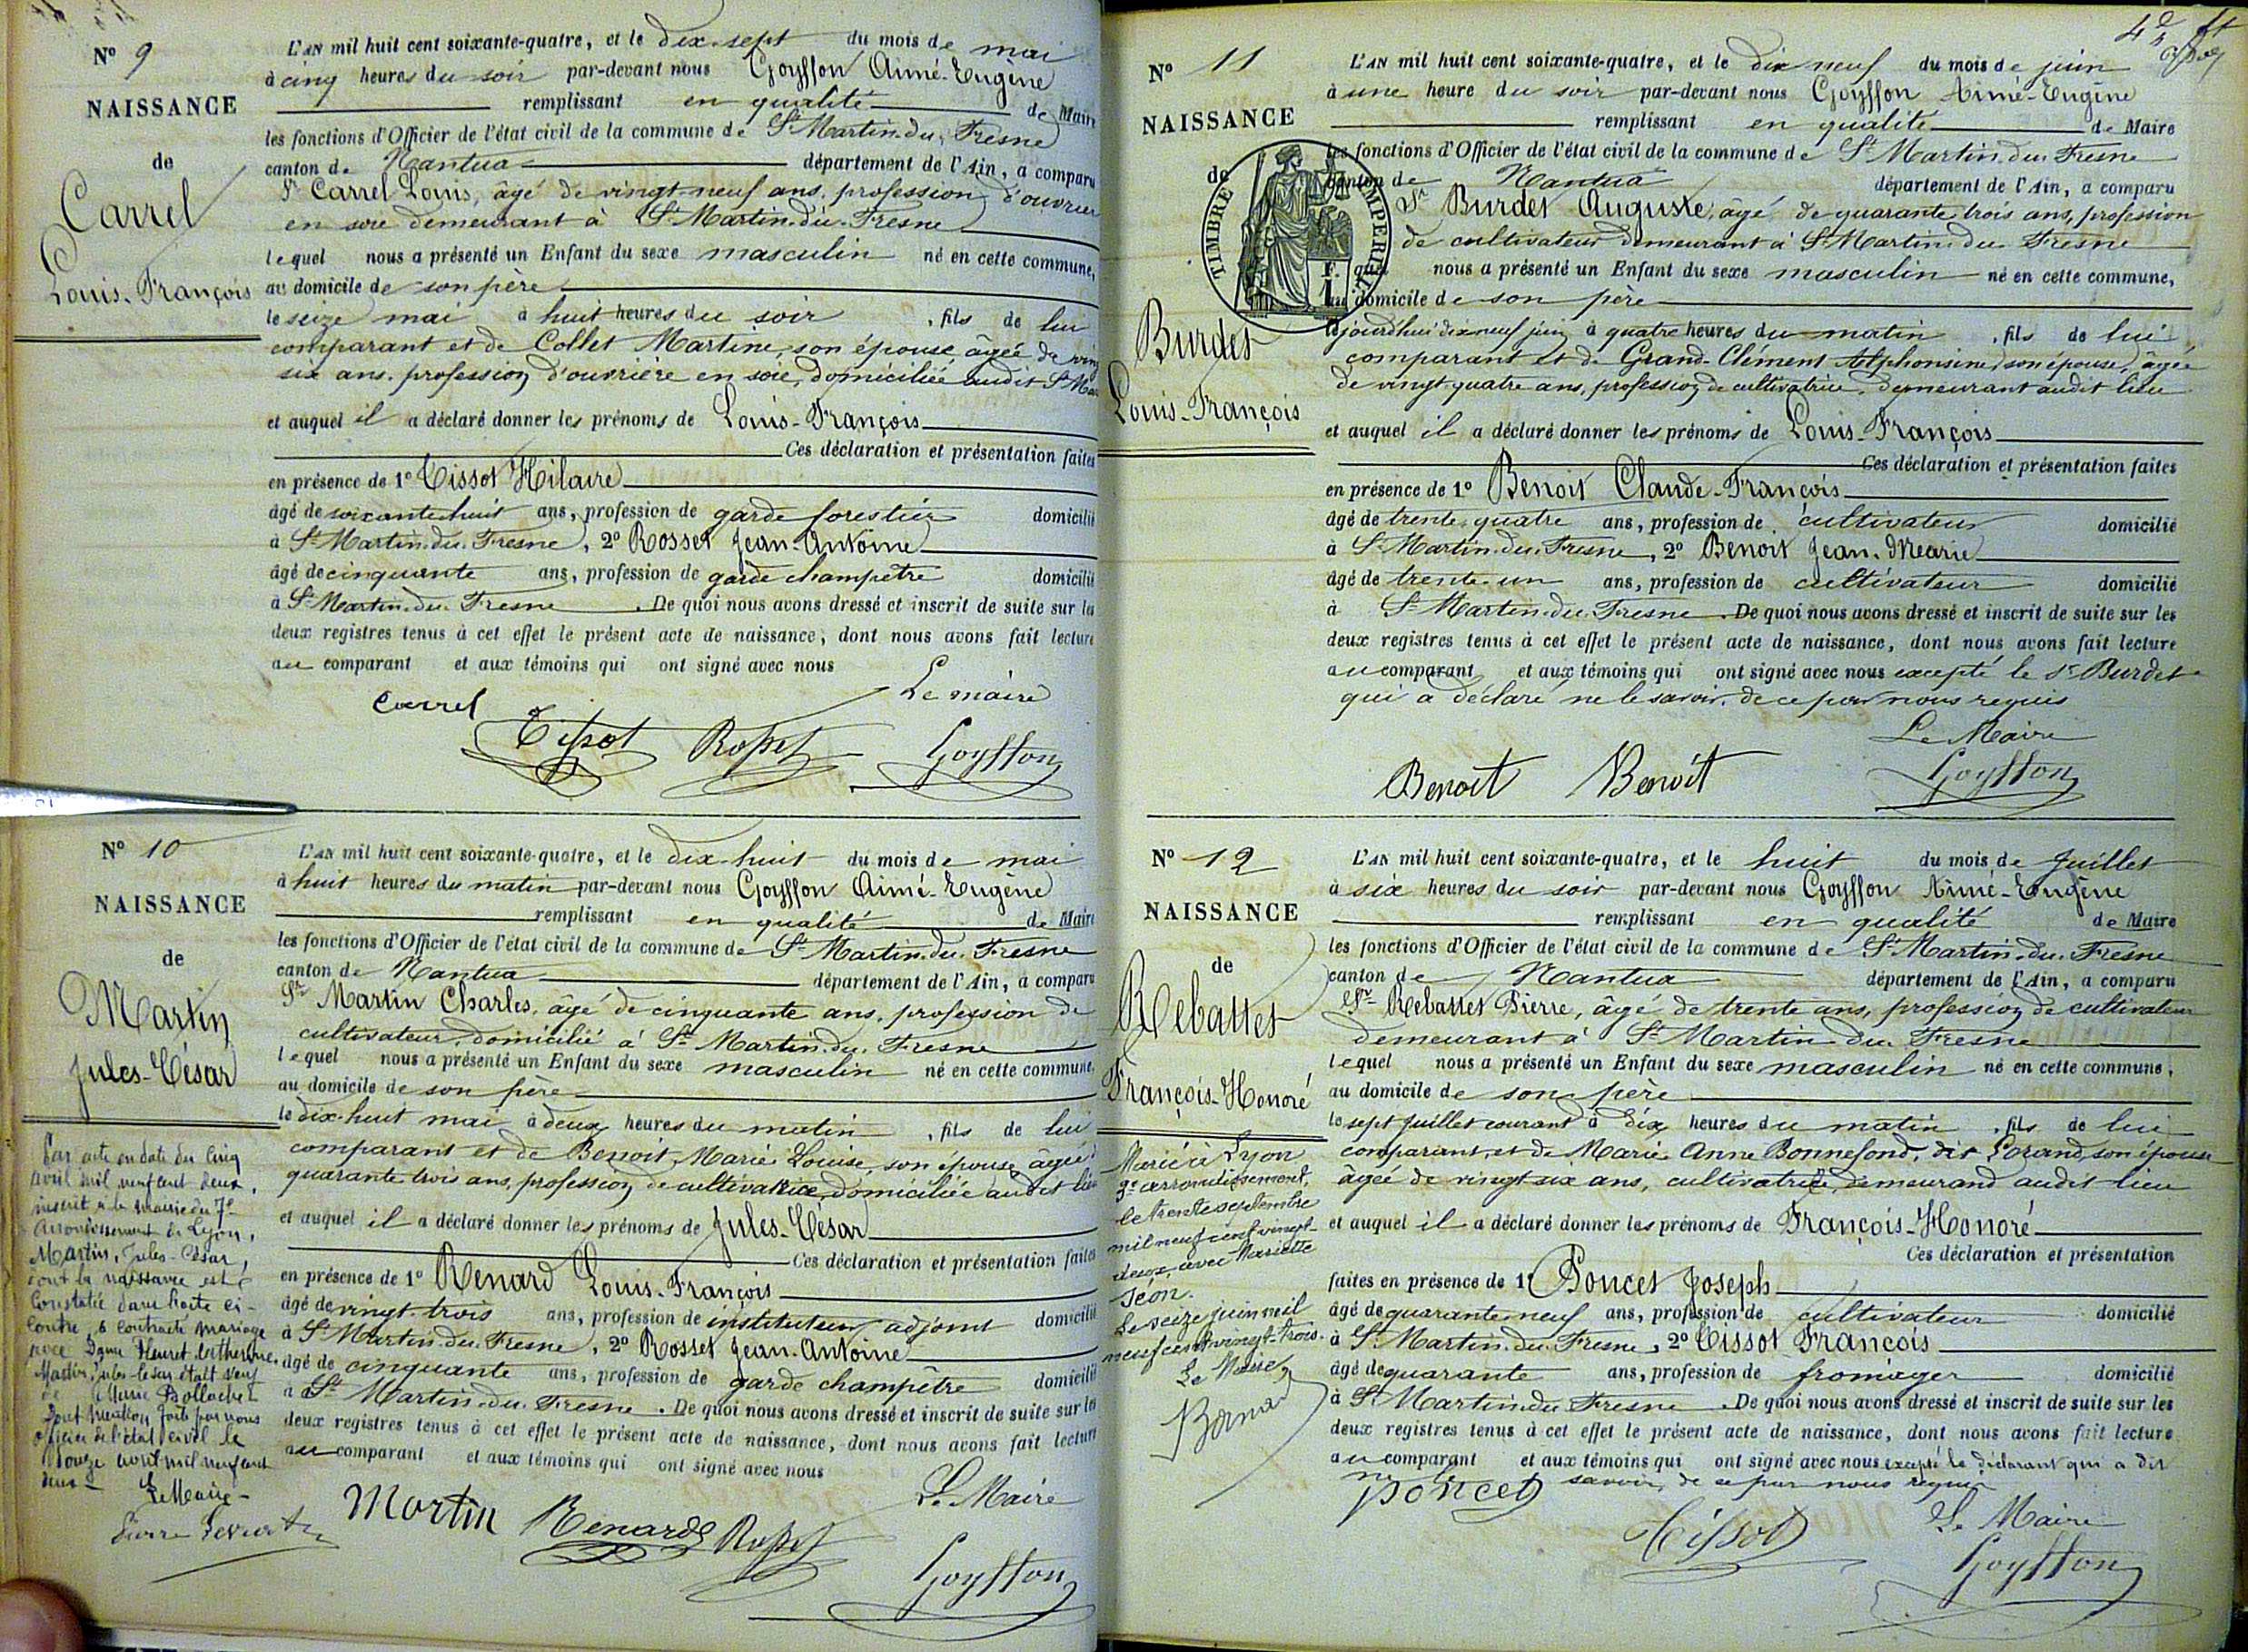 N° 9
NAISSANCE
de
Carrel
Louis-François
L'AN mil huit cent soixante-quatre, et le dix-sept du mois de mai
à cinq heures du soir par-devant nous Goyffon Aimé-Eugène
remplissant en qualité de Maire
les fonctions d'Officier de l'état civil de la commune de St Martin-du-Fresne
canton de Nantua département de l'Ain, a comparu
Sr Carrel Louis, âgé de vingt-neuf ans, profession d'ouvrier
en soie demeurant à St Martin-du-Fresne
lequel nous a présenté un Enfant du sexe masculin né en cette commune,
au domicile de son père
le seize mai à huit heures du soir, fils de lui
comparant et de Collet Martine, son épouse, âgée de vingt
six ans, profession d'ouvrière en soie, domiciliée audit St Mar
et auquel il a déclaré donner les prénoms de Louis-François
Ces déclaration et présentation faites
en présence de 1° Tissot Hilaire
âgé de soixante huit ans, profession de garde forestier domicilié
à St Martin-du-Fresne, 2° Rosset Jean-Antoine
âgé de cinquante ans, profession de garde champêtre domicilié
à St Martin-du-Fresne. De quoi nous avons dressé et inscrit de suite sur les
deux registres tenus à cet effet le présent acte de naissance, dont nous avons fait lecture
au comparant et aux témoins qui ont signé avec nous
Le maire
Carrel
Tissot Rosset Goyffon
N° 10
NAISSANCE
de
Martin
Jules-César
L'AN mil huit cent soixante-quatre, et le dix-huit du mois de mai
à huit heures du matin par-devant nous Goyffon Aimé-Eugène
remplissant en qualité de Maire
les fonctions d'Officier de l'état civil de la commune de St Martin-du-Fresne
canton de Nantua département de l'Ain, a comparu
Sr Martin Charles, âgé de cinquante ans, profession de
cultivateur, domicilié à St Martin-du-Fresne
lequel nous a présenté un Enfant du sexe masculin né en cette commune,
au domicile de son père
le dix-huit mai à deux heures du matin, fils de lui
comparant et de Benoit Marie Louise, son épouse âgée
quarante trois ans, profession de cultivatrice, domiciliée audit lieu
et auquel il a déclaré donner les prénoms de Jules-César
Ces déclaration et présentation faites
en présence de 1° Renard Louis-François
âgé de vingt-trois ans, profession de instituteur adjoint domicilié
à St Martin-du-Fresne, 2° Rosset Jean-Antoine
âgé de cinquante ans, profession de garde champêtre domicilié
à St Martin-du-Fresne. De quoi nous avons dressé et inscrit de suite sur les
deux registres tenus à cet effet le présent acte de naissance, dont nous avons fait lecture
au comparant et aux témoins qui ont signé avec nous
Le Maire
Martin Renard Rosset
Goyffon
Par acte en date du cinq
avril mil neuf cent deux,
inscrit à la mairie du 7e
arrondissement de Lyon,
Martin, Jules-César,
dont la naissance est
constatée dans l'acte ci-
contre, a contracté mariage
avec Dame Heuret Catherine.
Martin, Jules-César était veuf
de Marie Bollache
Dont mention faite par nous
officier de l'état civil le
douze avril mil neuf cent
deux
Le Maire
N° 11
NAISSANCE
de
Burdet
Louis-François
TIMBRE IMPERIAL
1 F.
L'AN mil huit cent soixante-quatre, et le dix neuf du mois de juin
à une heure du soir par-devant nous Goyffon Aimé-Eugène
remplissant en qualité de Maire
les fonctions d'Officier de l'état civil de la commune de St Martin-du-Fresne
canton de Nantua département de l'Ain, a comparu
Sr Burdet Auguste, âgé de quarante trois ans, profession
de cultivateur demeurant à St Martin-du-Fresne
quel nous a présenté un Enfant du sexe masculin né en cette commune,
au domicile de son père
aujourd'hui dix neuf juin à quatre heures du matin, fils de lui
comparant et de Grand-Clément Alphonsine, son épouse, âgée
de vingt quatre ans, profession de cultivatrice, demeurant audit lieu
et auquel il a déclaré donner les prénoms de Louis-François
Ces déclaration et présentation faites
en présence de 1° Benoit Claude-François
âgé de trente quatre ans, profession de cultivateur domicilié
à St Martin-du-Fresne, 2° Benoit Jean-Marie
âgé de trente-un ans, profession de cultivateur domicilié
à St Martin-du-Fresne. De quoi nous avons dressé et inscrit de suite sur les
deux registres tenus à cet effet le présent acte de naissance, dont nous avons fait lecture
au comparant et aux témoins qui ont signé avec nous excepté le sr Burdet
qui a déclaré ne le savoir, de ce par nous requis
Le Maire
Benoit Benoit Goyffon
N° 12
NAISSANCE
de
Rebattet
François-Honoré
L'AN mil huit cent soixante-quatre, et le huit du mois de Juillet
à six heures du soir par-devant nous Goyffon Aimé-Eugène
remplissant en qualité de Maire
les fonctions d'Officier de l'état civil de la commune de St Martin-du-Fresne
canton de Nantua département de l'Ain, a comparu
Sr Rebattet Pierre, âgé de trente ans, profession de cultivateur
demeurant à St Martin-du-Fresne
lequel nous a présenté un Enfant du sexe masculin né en cette commune,
au domicile de son père
le sept juillet courant à dix heures du matin, fils de lui
comparant et de Marie Anne Bonnefond, dit Lorand, son épouse
âgée de vingt six ans, cultivatrice, demeurand audit lieu
et auquel il a déclaré donner les prénoms de François-Honoré
Ces déclaration et présentation
faites en présence de 1° Poncet Joseph
âgé de quarante-neuf ans, profession de cultivateur domicilié
à St Martin-du-Fresne, 2° Tissot François
âgé de quarante ans, profession de fromager domicilié
à St Martin-du-Fresne. De quoi nous avons dressé et inscrit de suite sur les
deux registres tenus à cet effet le présent acte de naissance, dont nous avons fait lecture
au comparant et aux témoins qui ont signé avec nous excepté le déclarant qui a dit
ne le savoir, de ce par nous requis
Poncet
Tissot
Le Maire
Goyffon
Marié à Lyon
3e arrondissement,
le trente septembre
mil neuf cent vingt-
deux, avec Mariette
Jéon.
Le seize juin mil
neuf cent vingt-trois.
Le Maire,